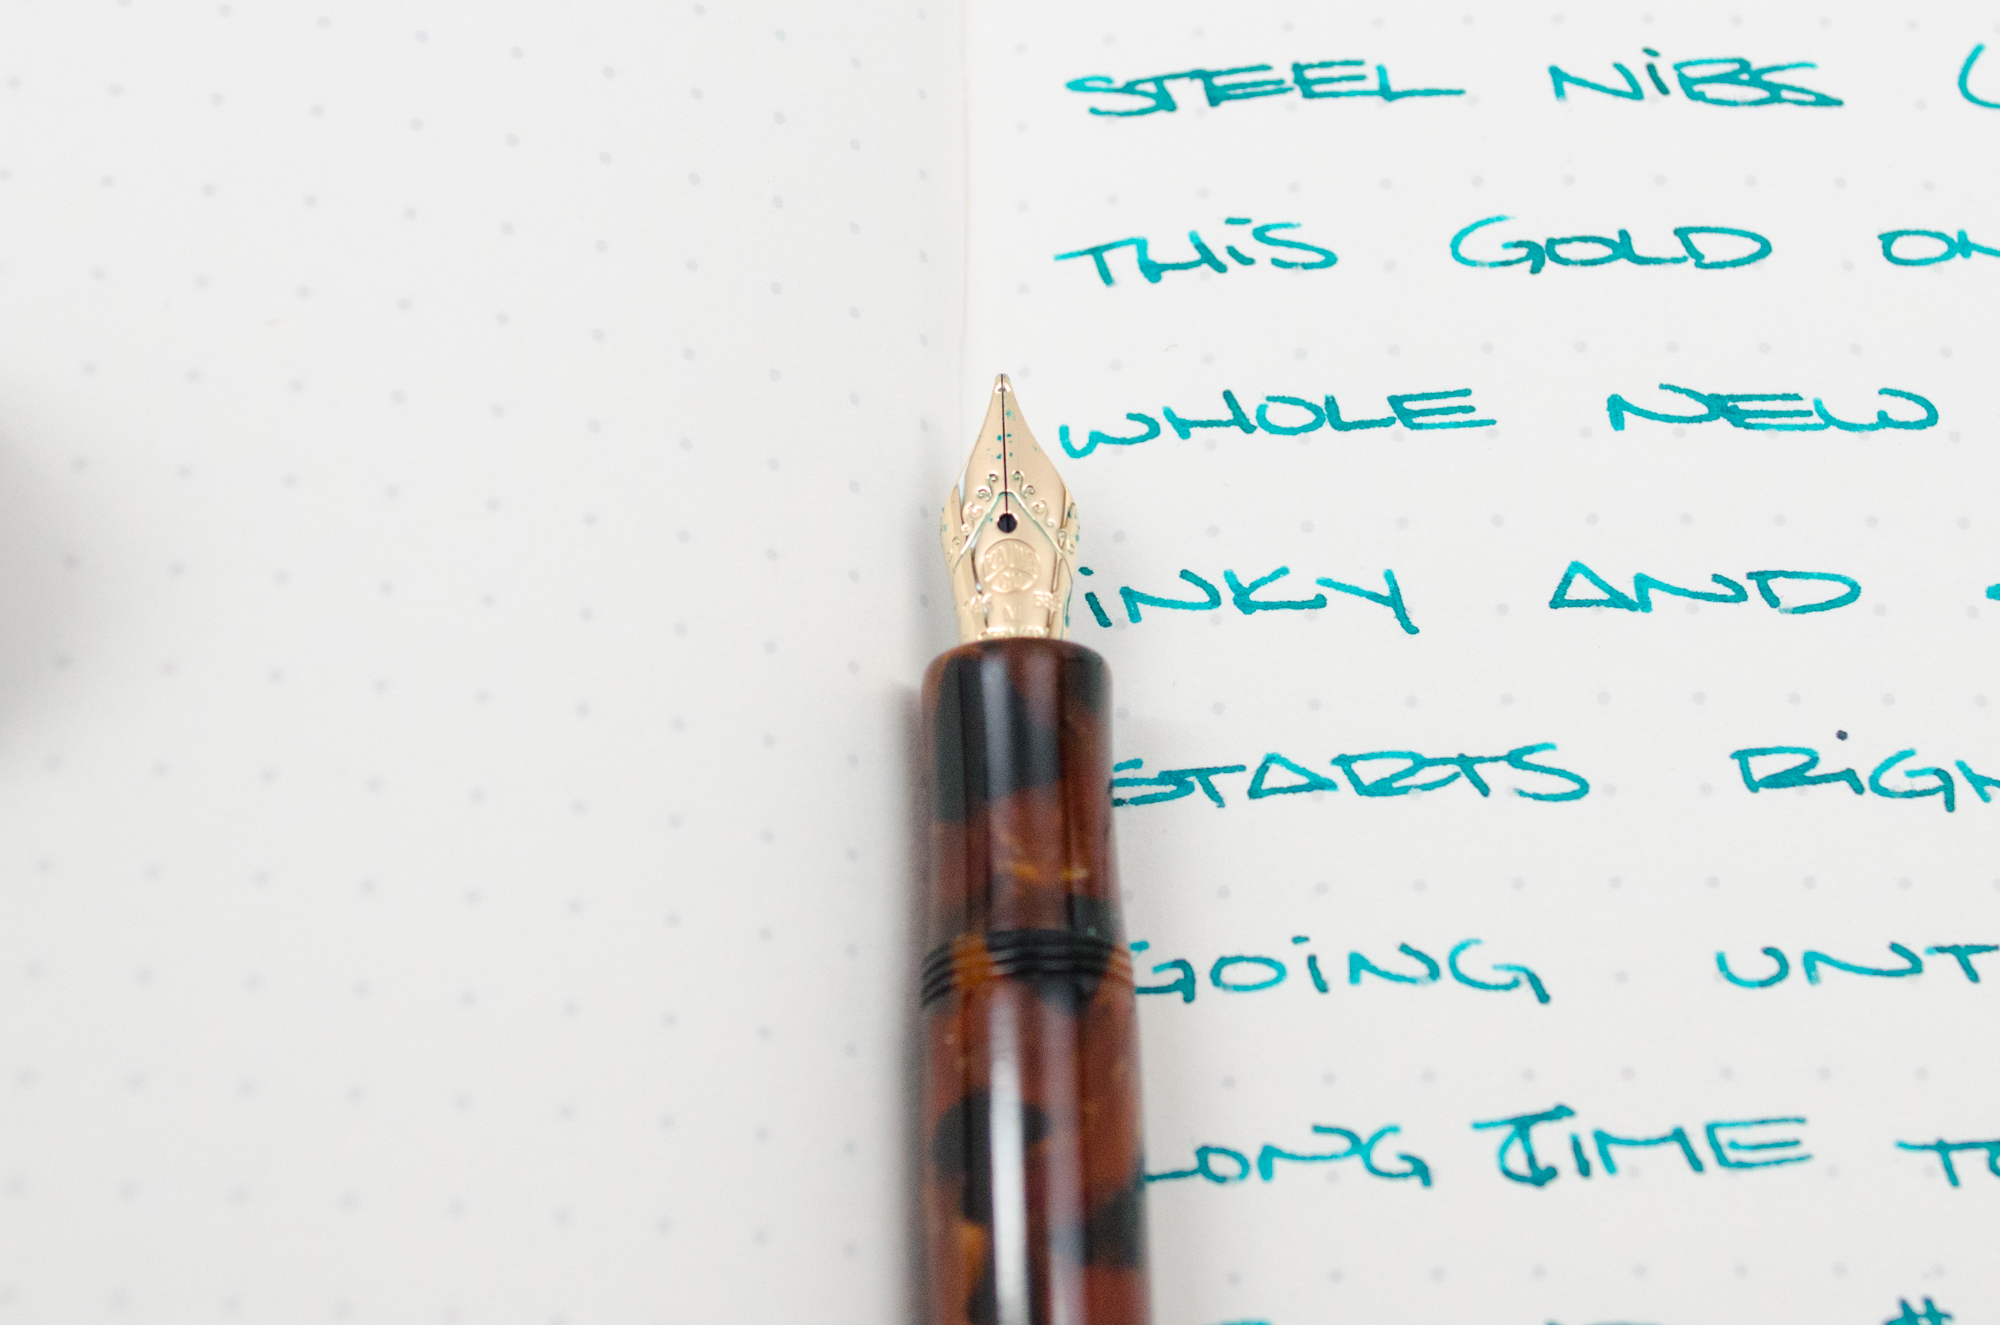 STEEL NiBS (
THiS GOLD
WHOLE NEW
iNKY AND
STARTS
GOiNG
LONG TiME